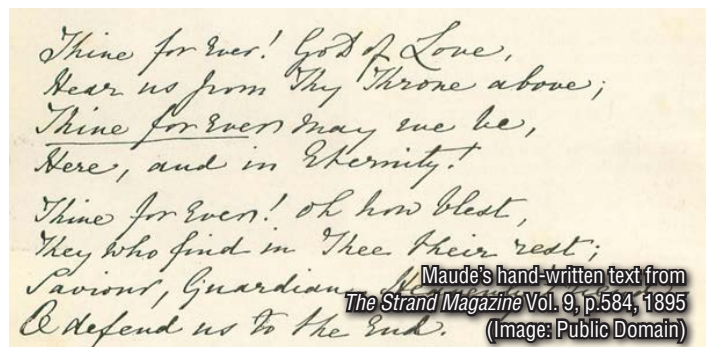 Thine for Ever! God of Love,
Hear us from Thy Throne above;
Thine for Ever may we be,
Here, and in Eternity!
Thine for Ever! oh how blest,
They who find in Thee their rest;
Saviour, Guardian,
O defend us to the End.
Maude's hand-written text from
The Strand Magazine Vol. 9, p.584, 1895
(Image: Public Domain)